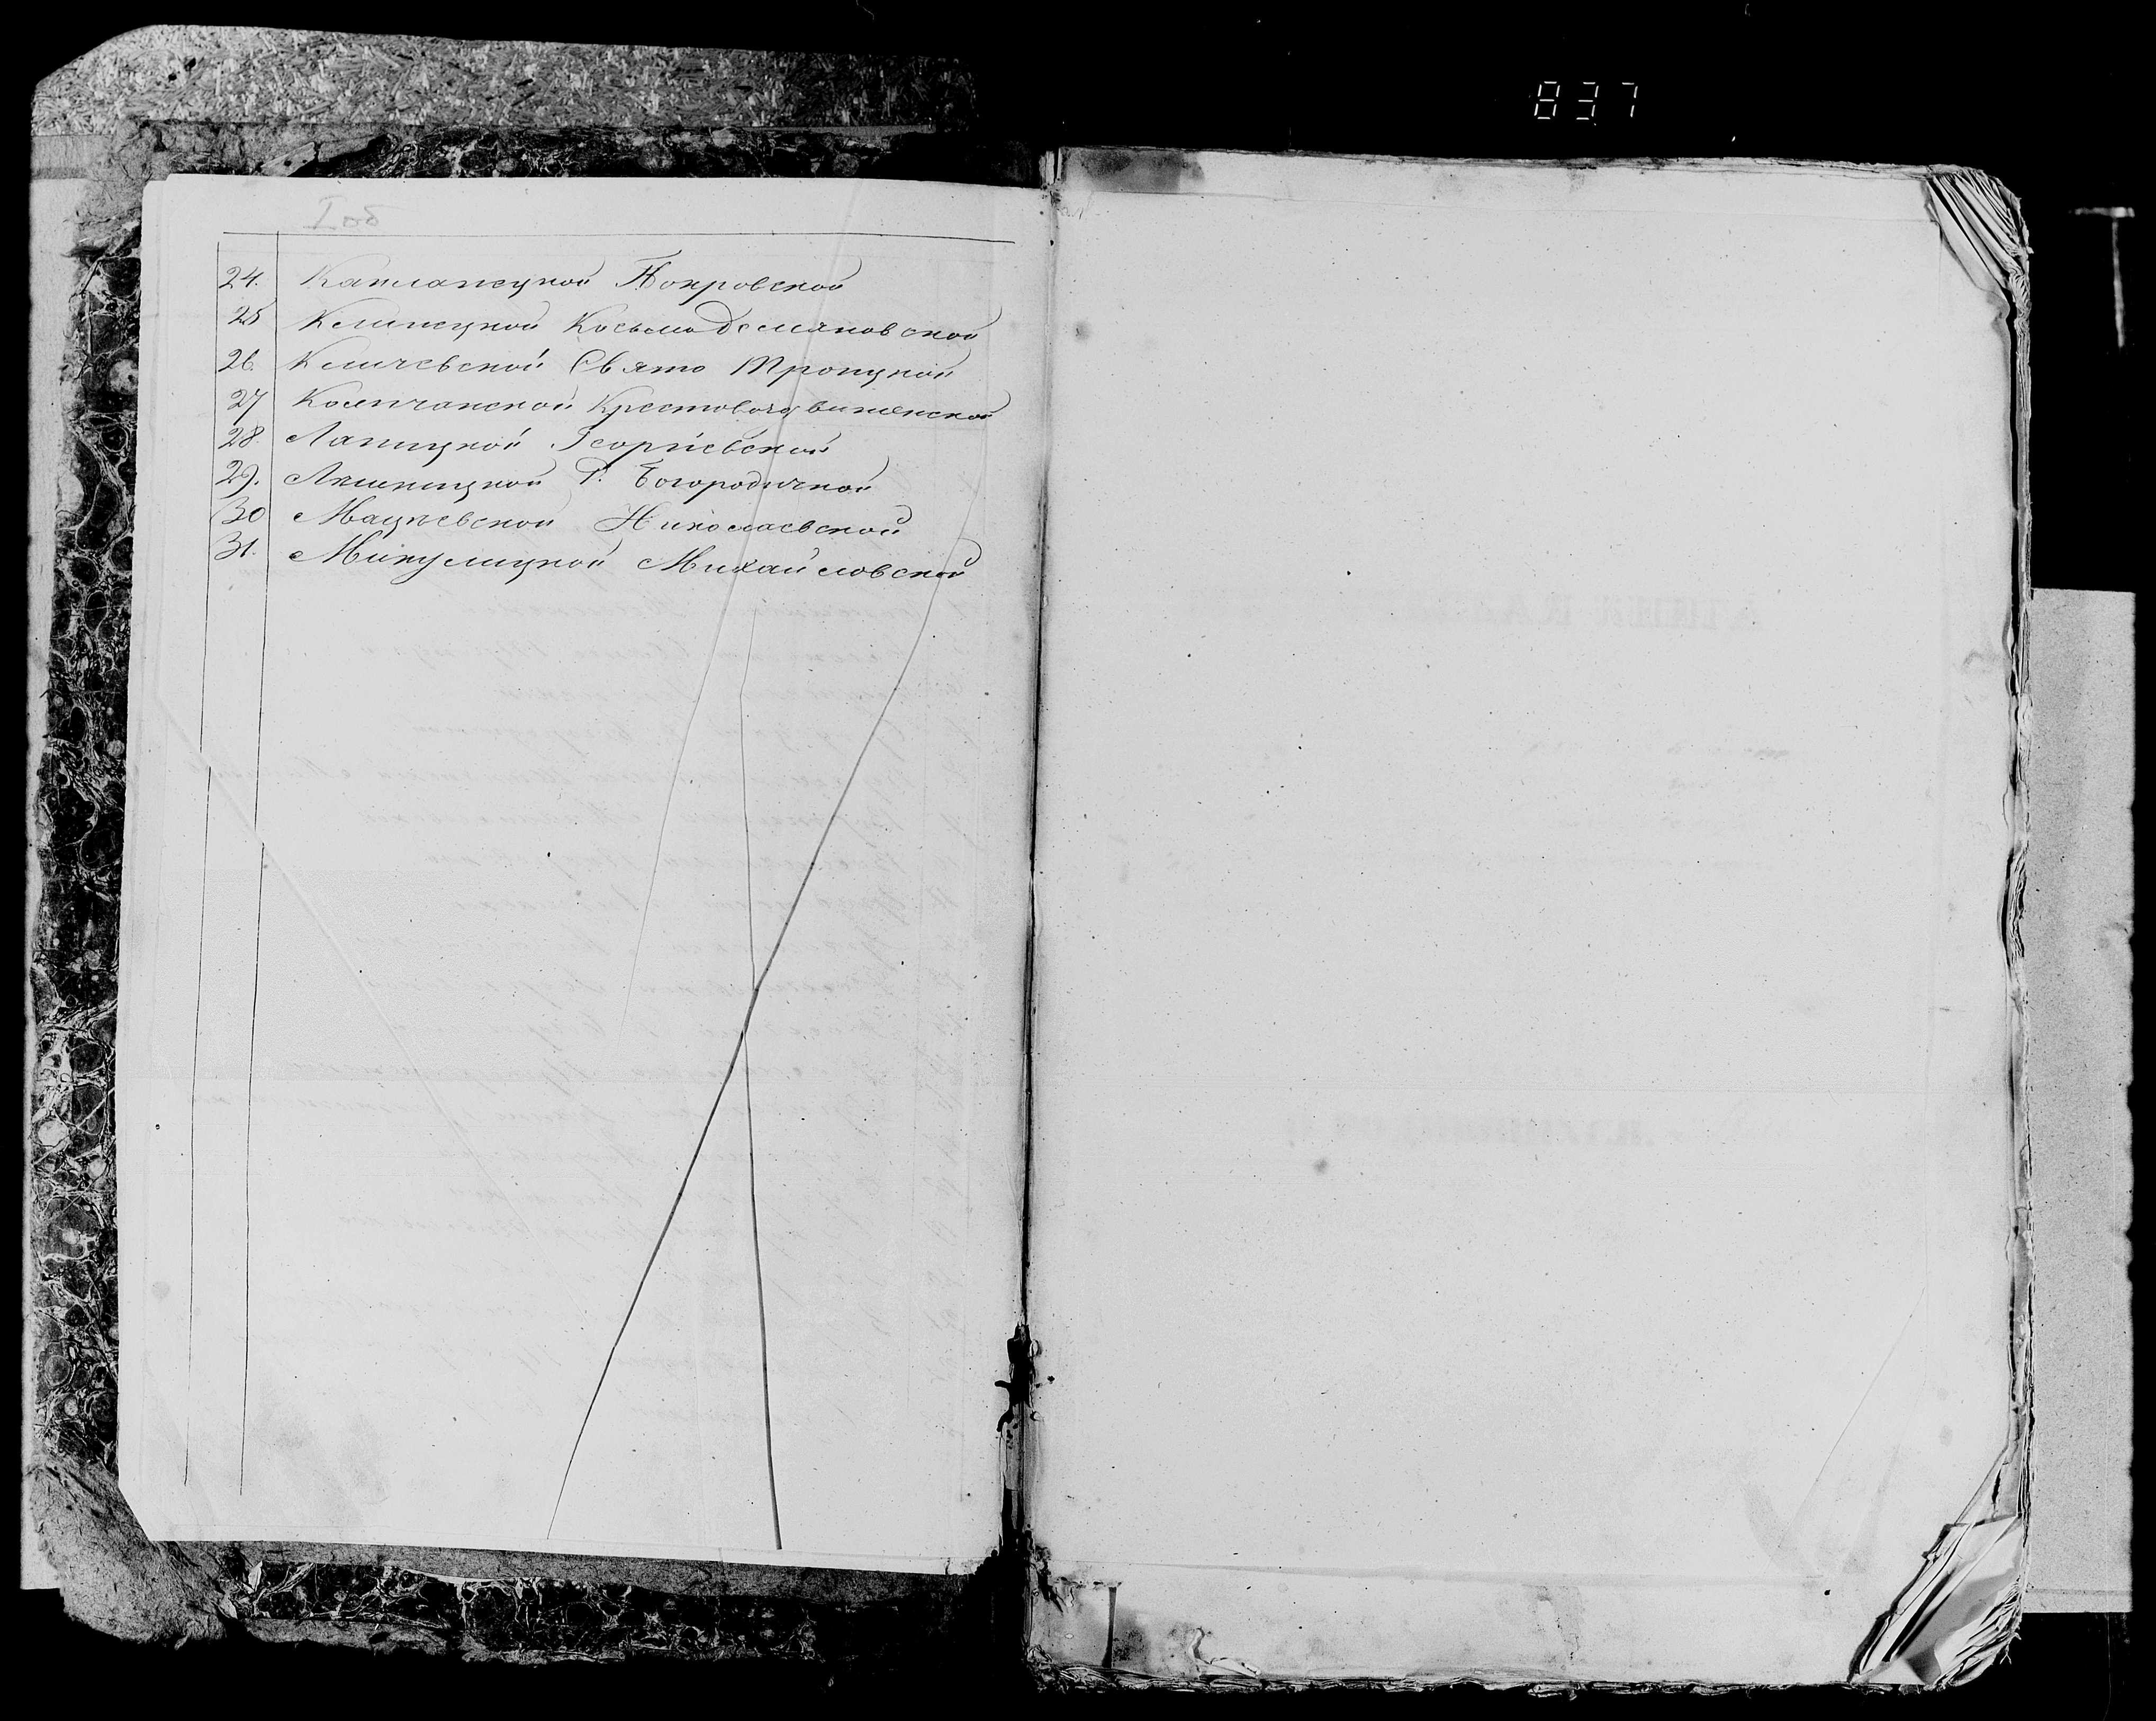 837
I об
24. Капланецкой Покровской
25 Клинецкой Косьмодемяновской
26. Кличевской Свято Троицкой
27 Колпчанской Крестовоздвиженской
28. Лапицкой Георгіевской
29. Лешницкой Р. Богородичной
30 Мацневской Николаевской
31. Микулицкой Михайловской